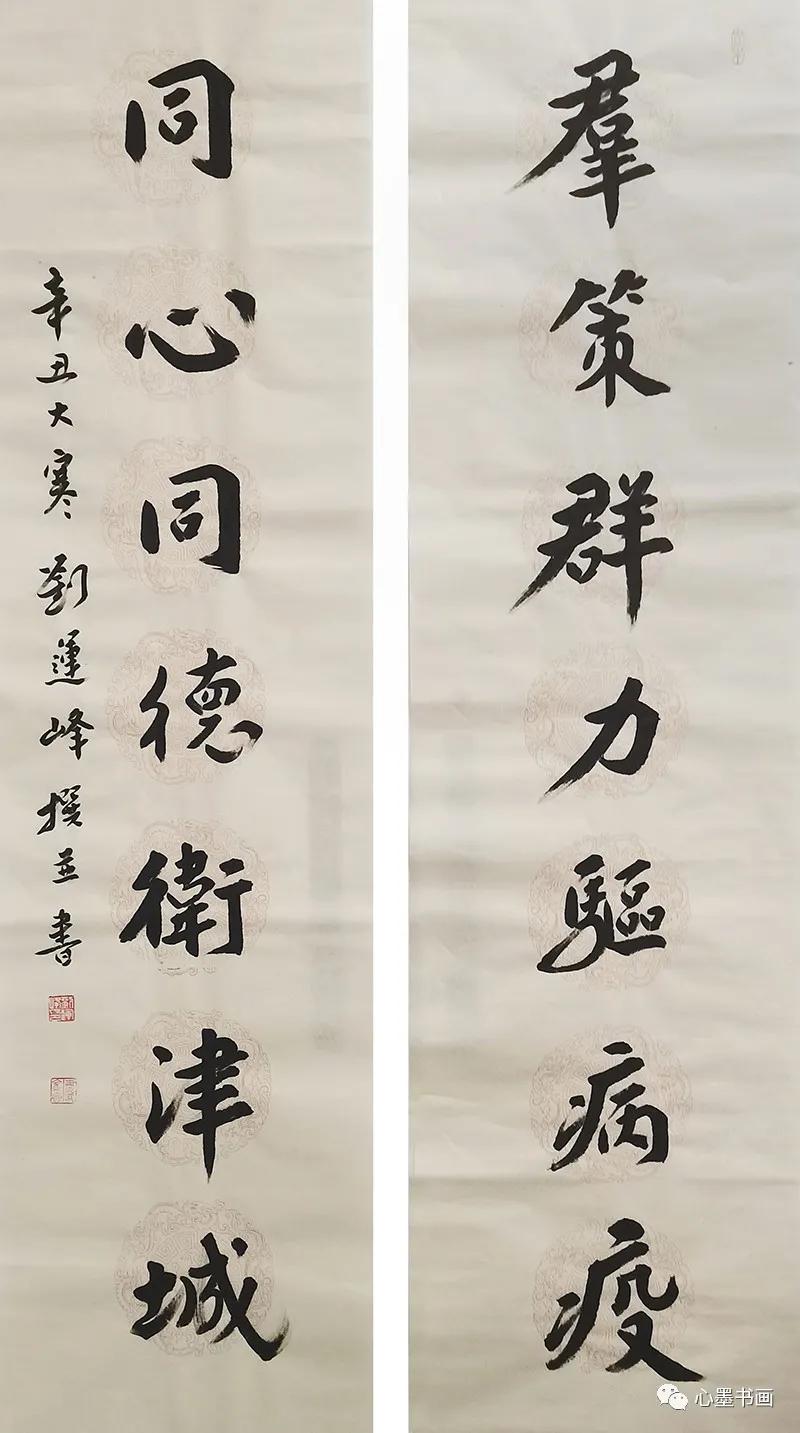 羣策群力驅病疫
同心同德衛津城
辛丑大寒劉運峰撰並書
心墨书画